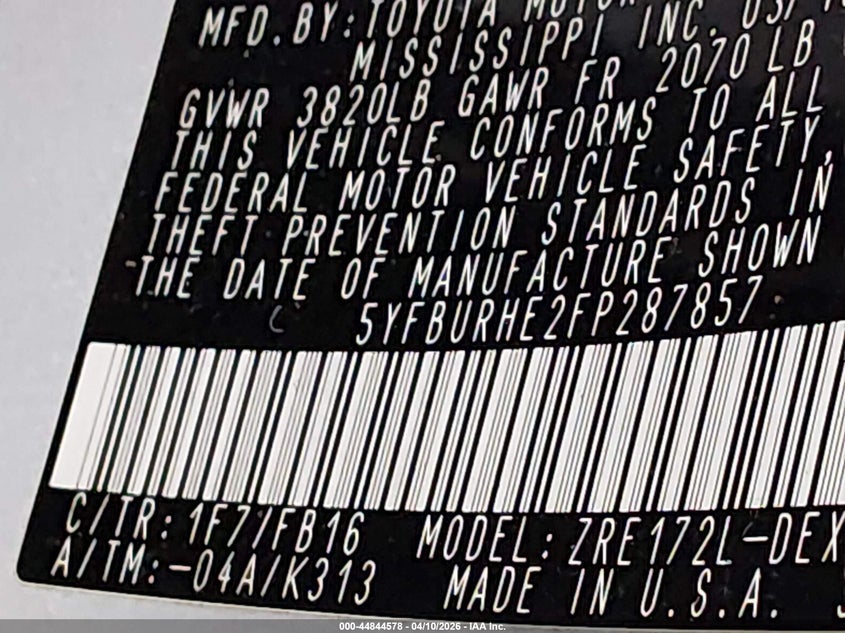 MFD.BY:TOYOTA MOTOR
MISSISSIPPI INC. USA
GVWR 3820LB GAWR FR 2070 LB
THIS VEHICLE CONFORMS TO ALL
FEDERAL MOTOR VEHICLE SAFETY,
THEFT PREVENTION STANDARDS IN
THE DATE OF MANUFACTURE SHOWN
5YFBURHE2FP287857
C/TR:1F7/FB16 MODEL:ZRE172L-DEX
A/TM:-04A/K313 MADE IN U.S.A.
000-44844578 - 04/10/2026 - IAA Inc.